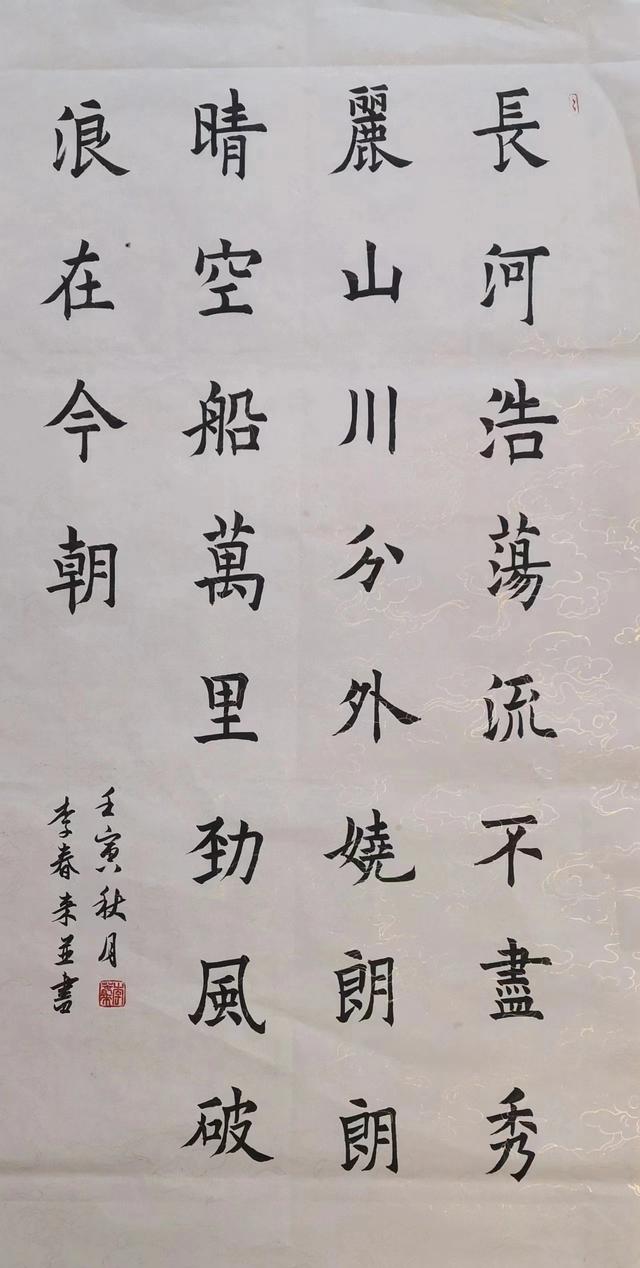 長河浩蕩流不盡秀
麗山川分外嬈朗朗
晴空船萬里勁風破
浪在今朝
壬寅秋月
李春来並書